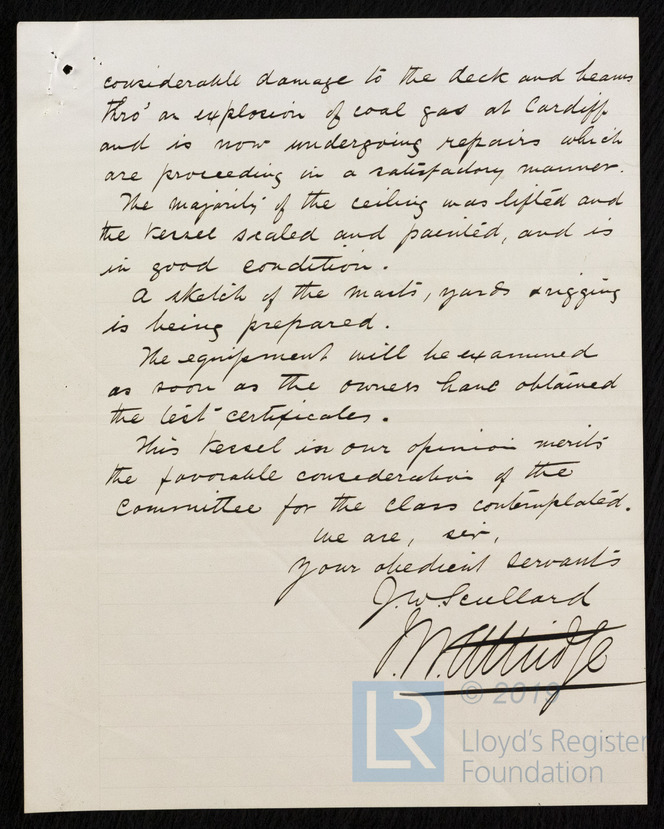 considerable damage to the deck and beams
thro' an explosion of coal gas at Cardiff
and is now undergoing repairs which
are proceeding in a satisfactory manner.
The majority of the ceiling was lifted and
the vessel scaled and painted, and is
in good condition.
A sketch of the masts, yards & rigging
is being prepared.
The equipment will be examined
as soon as the owners have obtained
the test certificates.
This vessel in our opinion merits
the favorable consideration of the
Committee for the class contemplated.
We are, sir,
your obedient servants
J.W. Scullard
J.W. Attridge
© 2019
LR
Lloyd's Register
Foundation